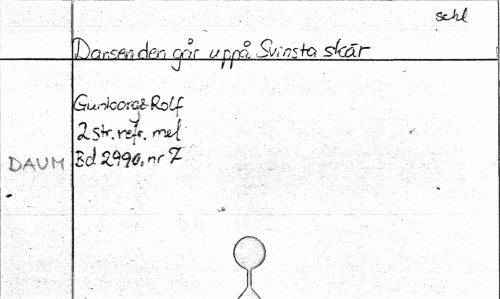 schl
Dansen den går uppå Svinsta skär
Gunborg & Rolf
2 str. refr. mel
DAUM Bd 2990, nr 7